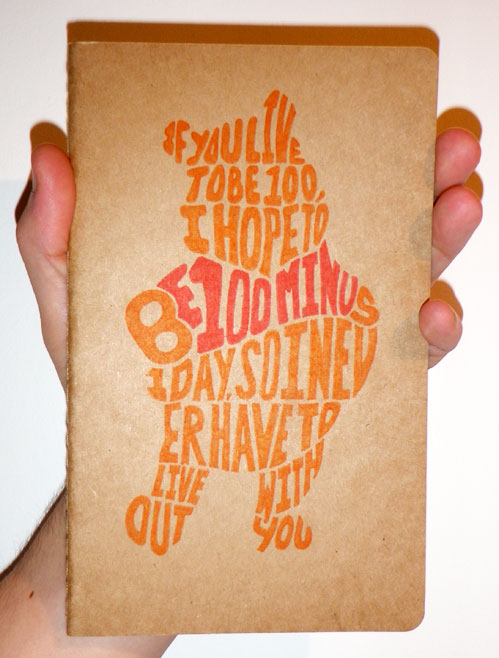 IF YOU LIVE
TO BE 100,
I HOPE TO
BE 100 MINUS
1 DAY, SO I NEV
ER HAVE TO
LIVE WITH
OUT YOU